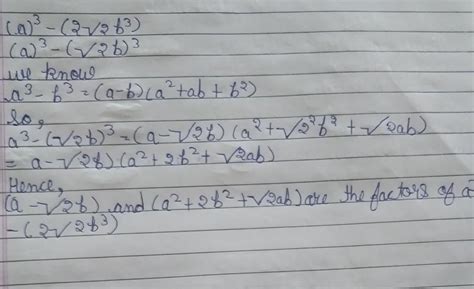 (a)³ - (2√2b³)
(a)³ - (√2b)³
we know
a³ - b³ = (a-b)(a²+ab+b²)
So,
a³ - (√2b)³ = (a-√2b) (a²+√2²b²+√2ab)
= a-√2b) (a²+2b²+√2ab)
Hence,
(a-√2b) and (a²+2b²+√2ab) are the factors of a³
- (2√2b³)